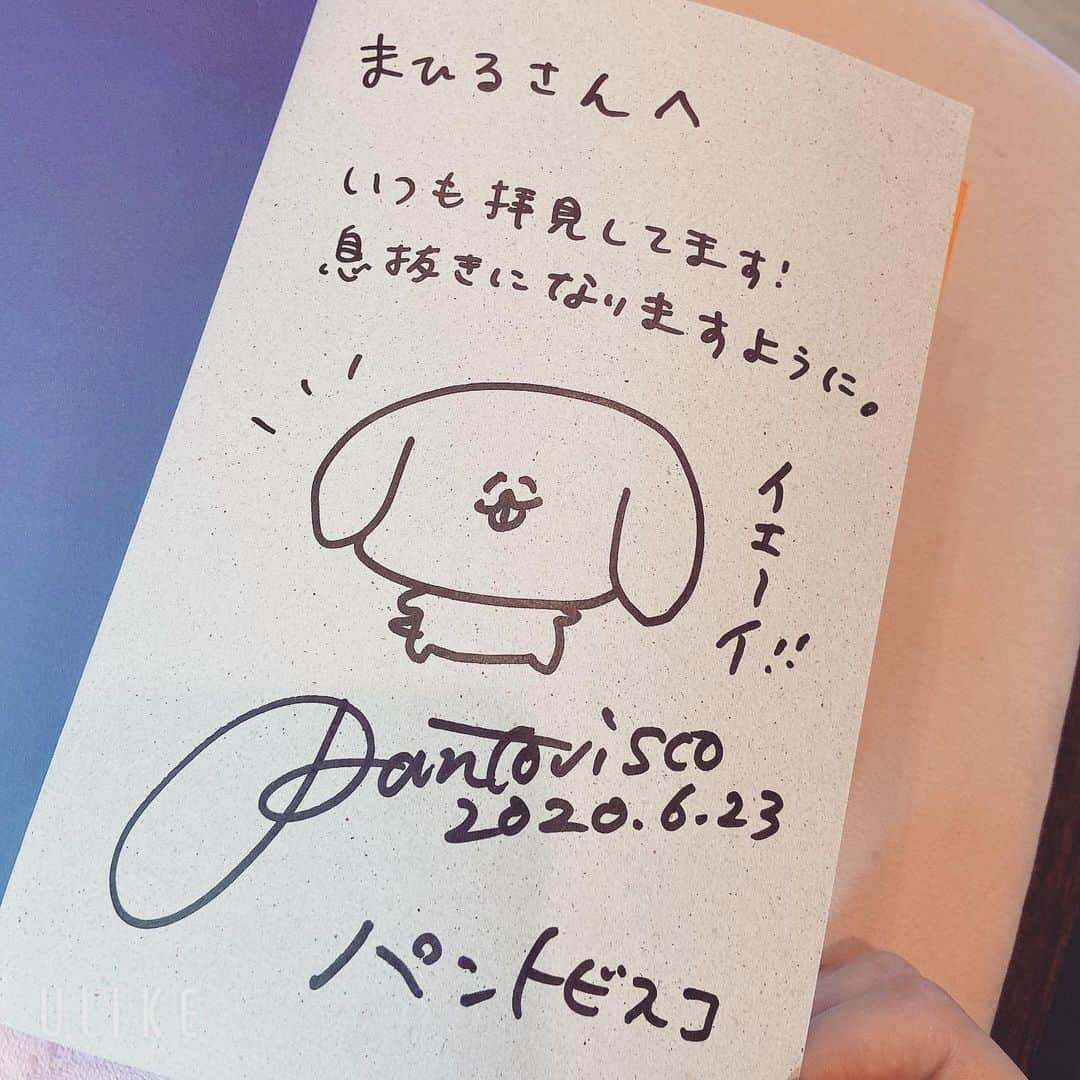 まひるさんへ
いつも拝見してます!
息抜きになりますように。
イエーイ!!
Pantovisco
2020.6.23
パントビスコ
ULIKE